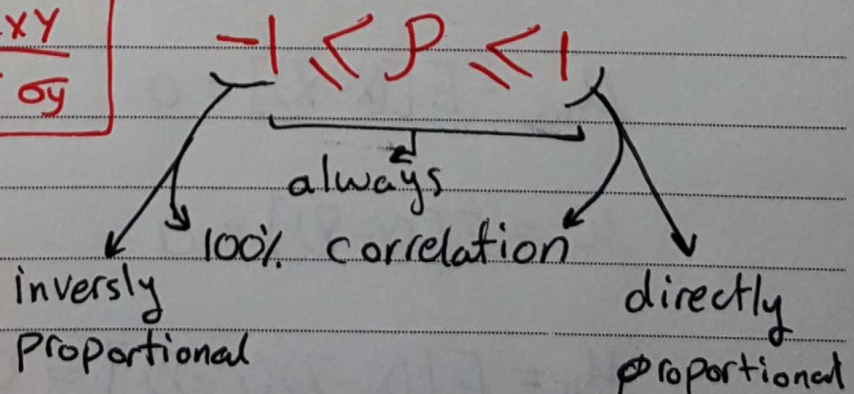 XY
σy
-1 ≤ ρ ≤ 1
always
100% correlation
inversly
proportional
directly
proportional